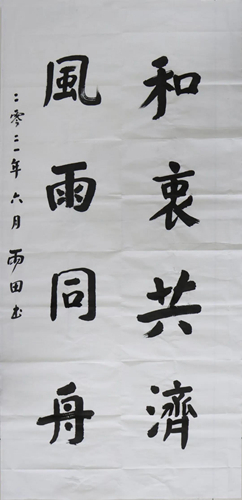 和衷共濟
風雨同舟
二零二一年六月雨田書